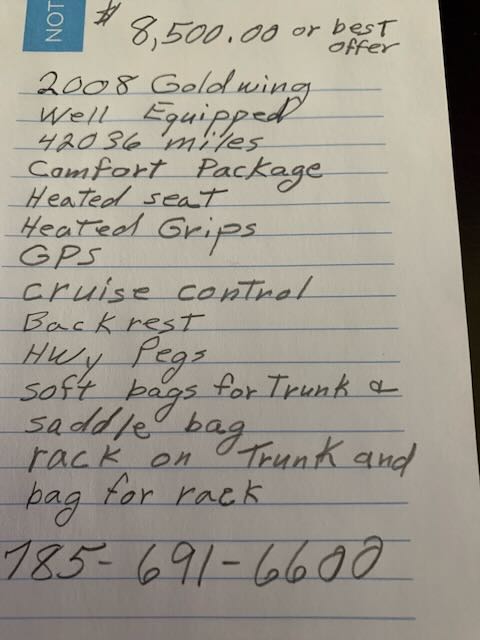 NOT
$ 8,500.00 or best
offer
2008 Goldwing
Well Equipped
42036 miles
Comfort Package
Heated seat
Heated Grips
GPS
cruise control
Backrest
Hwy Pegs
soft bags for Trunk &
saddle bag
rack on Trunk and
bag for rack
785-691-6600